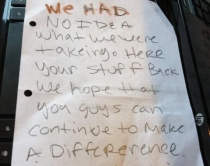 We HAD
NO IDEA
what we were
takeing. Here
Your stuff Back
we hope that
you guys can
continue to Make
A Difference